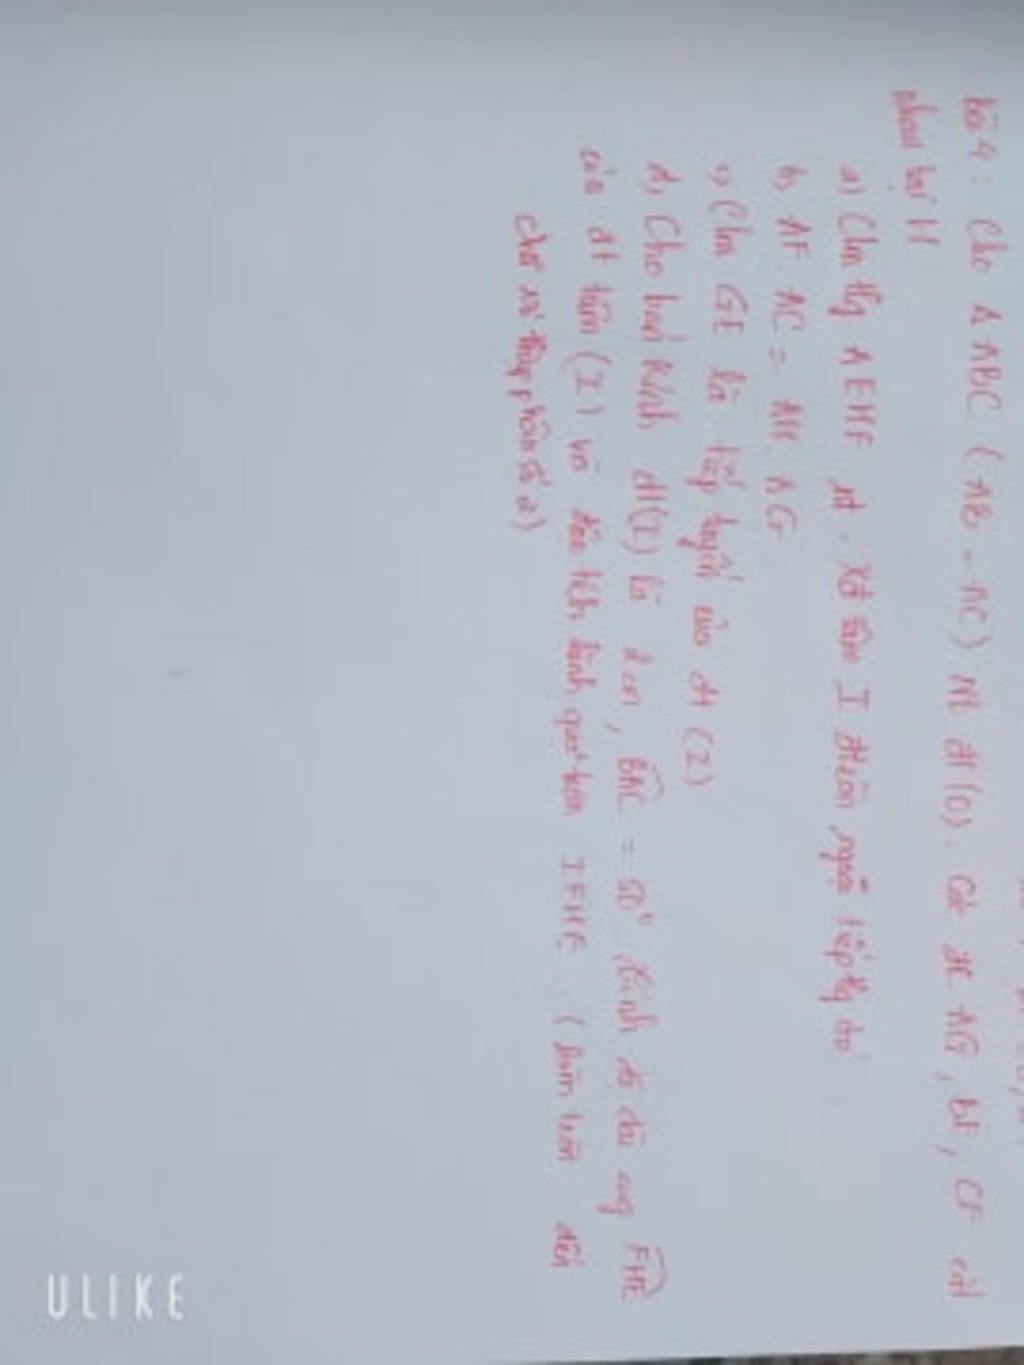 bài 4: Cho Δ ABC (AB = AC) Nt đt(O). Các đc AG, BE, CF cắt
nhau tại H
a) Cm tg AEHF nt. Xđ tâm I đtròn ngoại tiếp tg đó
b, AF.AC = AH.AG
c) Cm GE là tiếp tuyến của đt (I)
d, Cho bán kính đt(I) là 2cm, BAC = 50° tính độ dài cung FHE
của đt tâm (I) và diện tích hình quạt tròn IFHE (làm tròn đến
chữ số thập phân số 2)
ULIKE